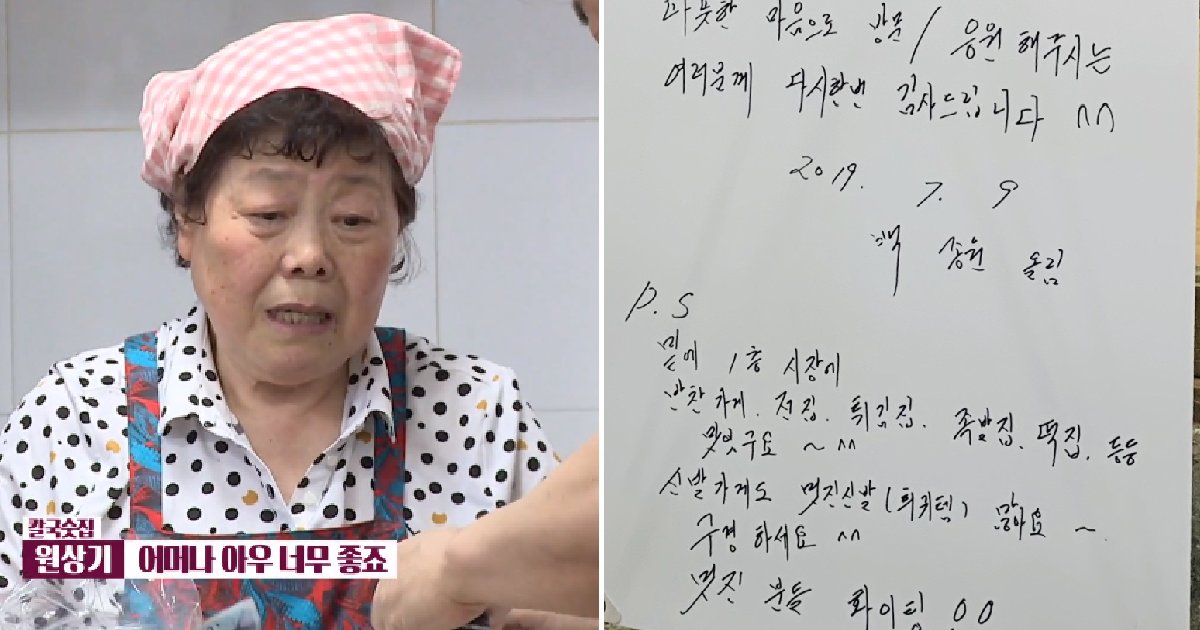 칼국숫집
원상기 어머나 아우 너무 좋죠
따뜻한 마음으로 방문/응원해주시는
여러분께 다시한번 감사드립니다 ^^
2019. 7. 9
백종원 올림
P.S
밑에 1층 시장에
반찬가게. 전집. 튀김집. 족발집. 떡집. 등등
맛있구요 ~ ^^
신발가게도 멋진신발(튀귀템) 많아요 ~
구경하세요 ^^
멋진 분들 화이팅 00